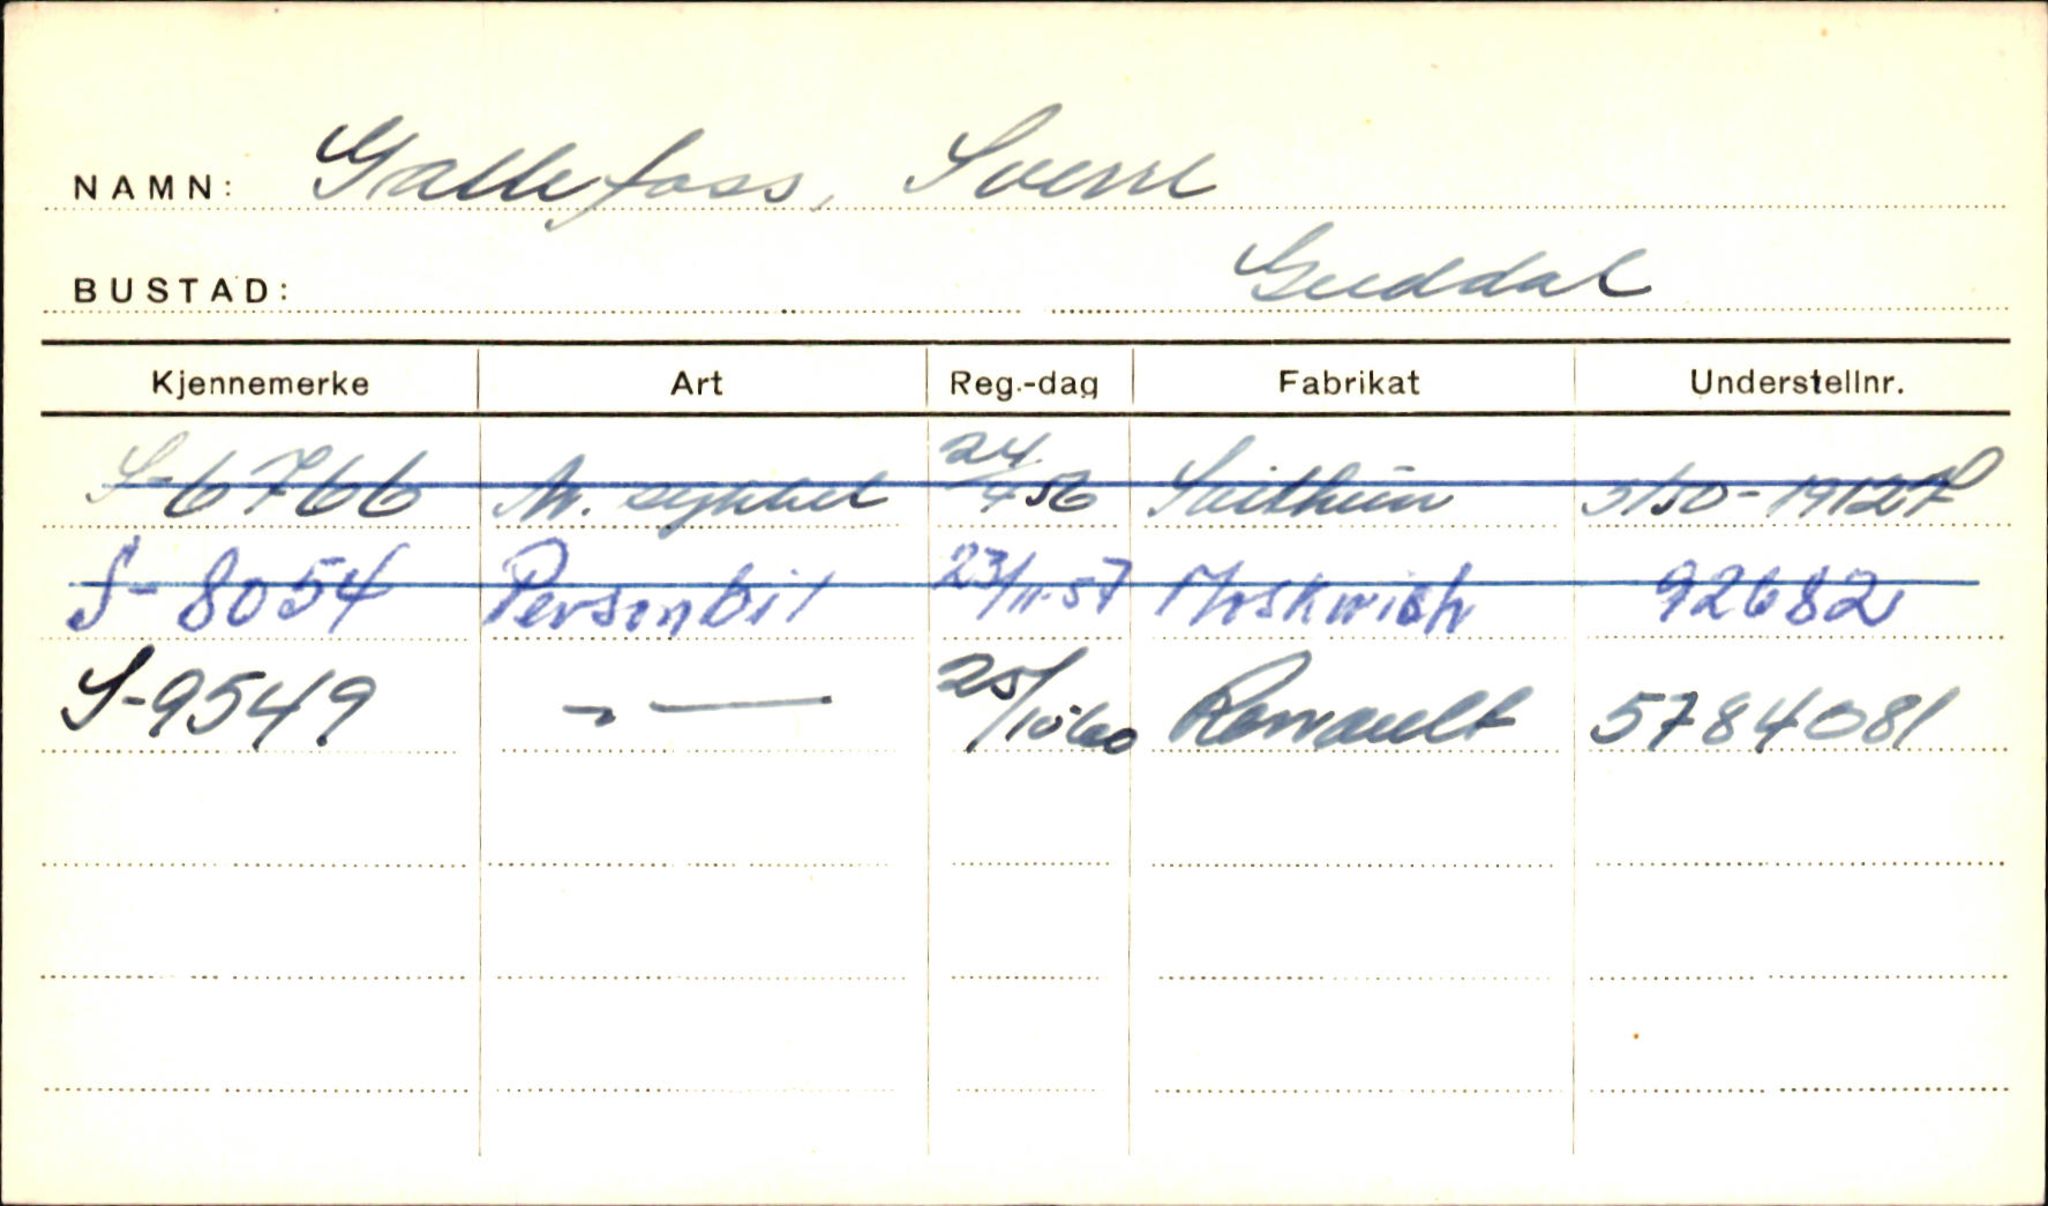 NAMN: Gallefoss, Sverre
BUSTAD: Guddal
Kjennemerke Art Reg.-dag Fabrikat Understellnr.
S-6766 M. sykkel 24/4 56 Svithun 5150-19127
S-8054 Personbil 23/11-57 Moskwich 92682
S-9549 — " — 25/10 60 Renault 5784081